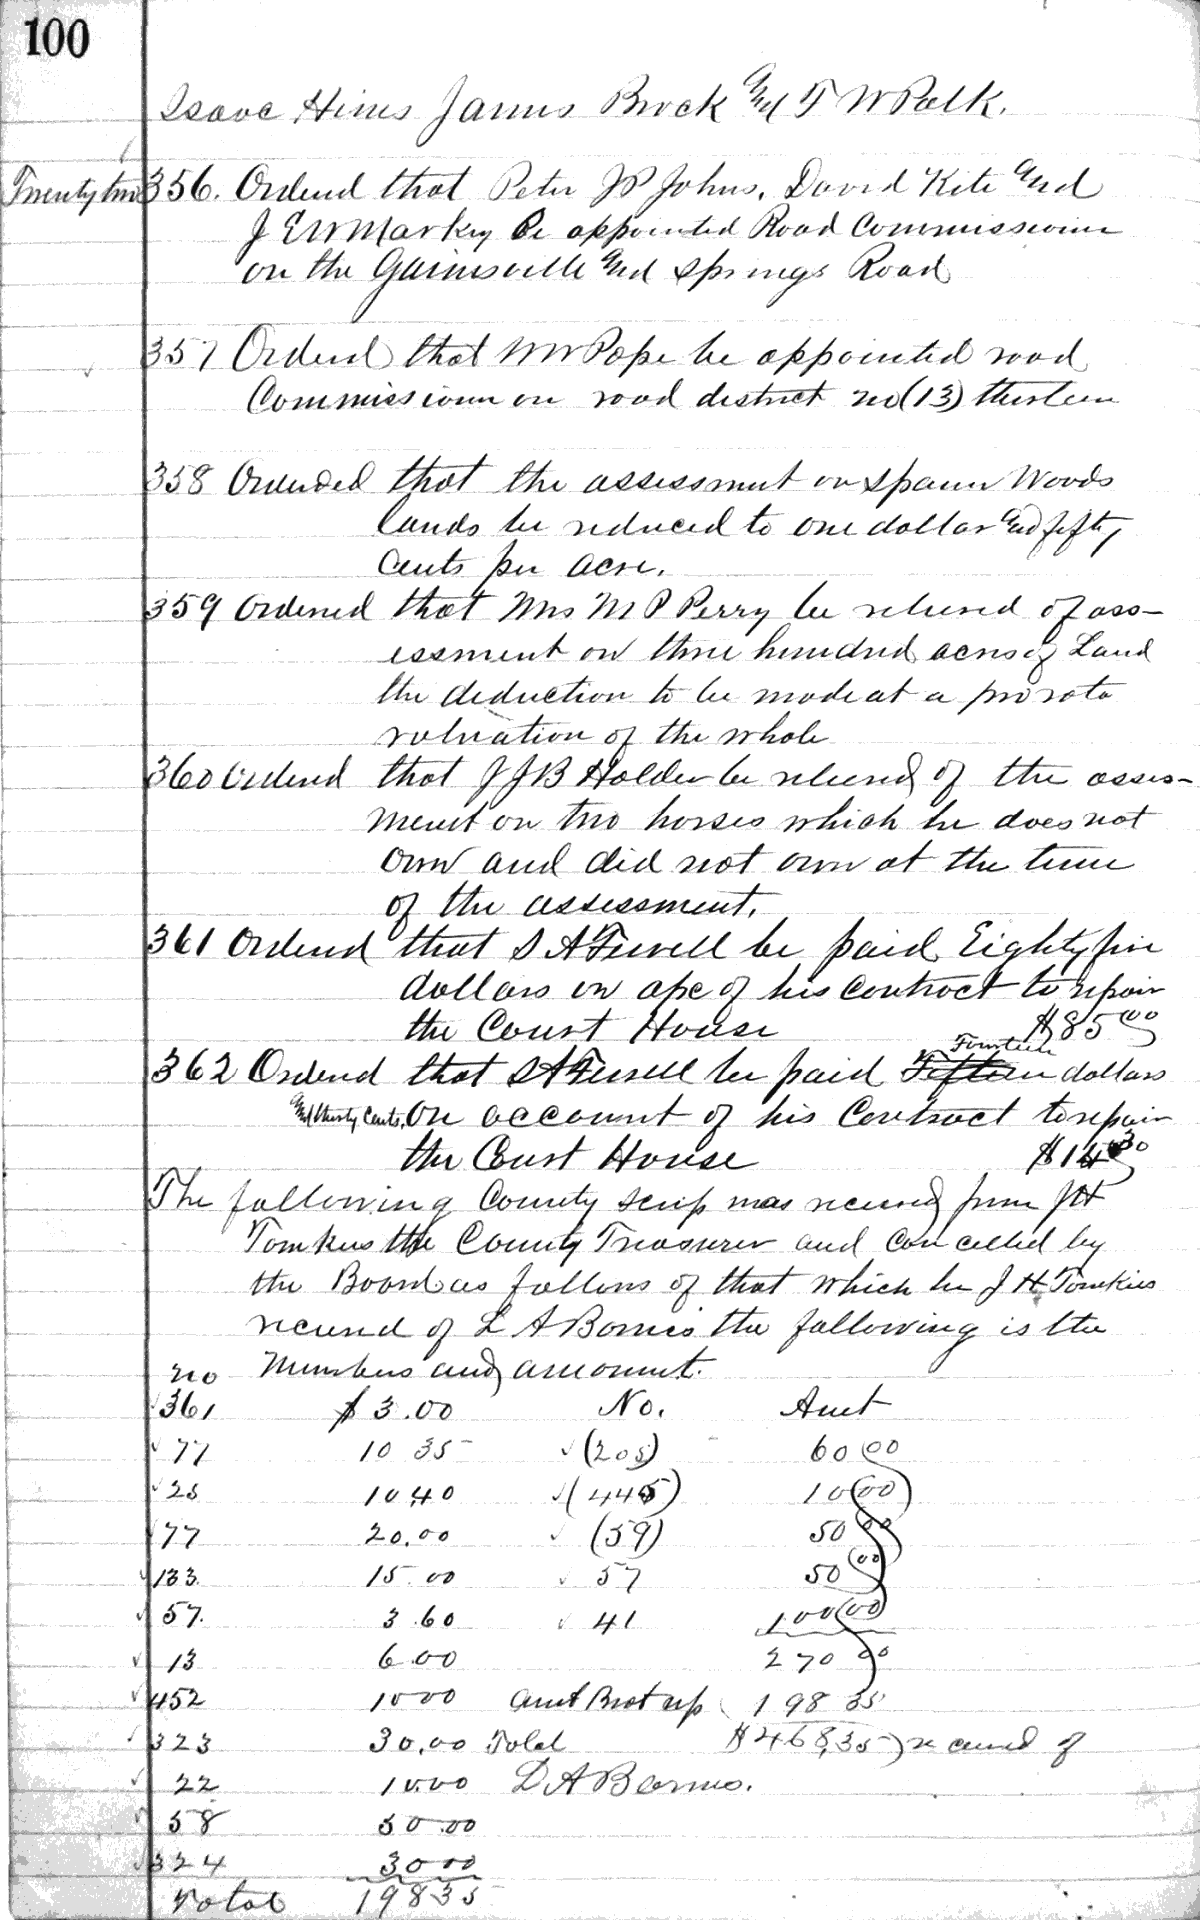 100
Isaac Hines James Brock And T W Polk.
Twenty two 356. Ordend that Peter JP Johns, David Kite And
J E W Markey Be appointed Road Commissioun
on the Gainsville And Springs Road
357 Ordend that Wm Pope be appointed road
Commissioun on road district no (13) thirteen
358 Ordended that the assessment on Spann Woods
lands be reduced to one dollar and fifty
Cents per acre.
359 Ordened that Mrs M P Perry be releved of ass-
essment on three hundred acres of Land
the deduction to be made at a pro rata
valuation of the whole
360 Ordend that J J B Holder be releved of the asses-
ment on two horses which he does not
own and did not own at the time
of the assessment.
361 Ordend that S A Fewell be paid Eighty five
dollars on apc of his Contract to repair
the Court House $85 00
Fourteen
362 Ordend that S A Fewell be paid Fifteen dollars
And thirty Cents. On account of his Contract to repair
the Court House $14 30
The following County scrip was receved from J H
Tomkies the County Treasurer and Concelled by
the Board as follows of that which he J H Tomkies
receved of L A Barnes the following is the
no Numbers and amount.
361 $ 3.00 No. Amt
77 10 35 (205) 60 00
25 10 40 (445) 10 00
77 20.00 (59) 50 00
133. 15.00 57 50 00
57. 3.60 41 100 00
13 6.00 270 00
452 10 00 amt Brot up 198 35
323 30.00 Total $468,35 receved of
22 10.00 L A Barnes.
58 30.00
324 30 00
Total 198 35